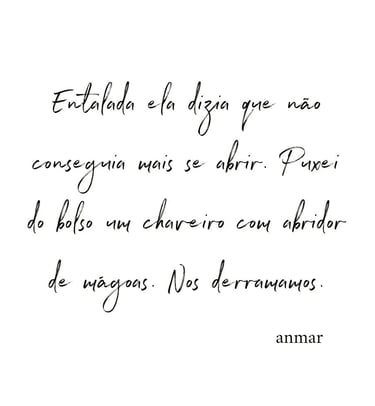 Entalada ela dizia que não
conseguia mais se abrir. Puxei
do bolso um chaveiro com abridor
de mágoas. Nos derramamos.
anmar